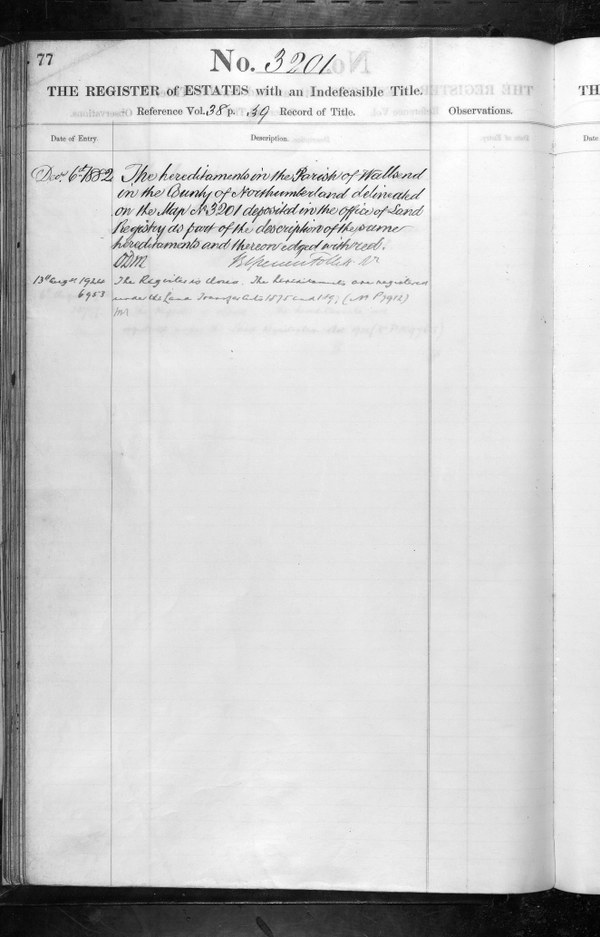 77
No. 3201
THE REGISTER of ESTATES with an Indefeasible Title.
Reference Vol. 38 p. 59 Record of Title.
Observations.
Date of Entry
Description.
Decr. 6th 1882
The hereditaments in the Parish of Wallsend
in the County of Northumberland delineated
on the Map No 3201 deposited in the office of Land
Registry as part of the description of the same
hereditaments and thereon edged with red.
13th Augst 1924
The Register is closed. The hereditaments are registered
6953
under the Land Transfer Acts 1875 and 1897
TH
Date